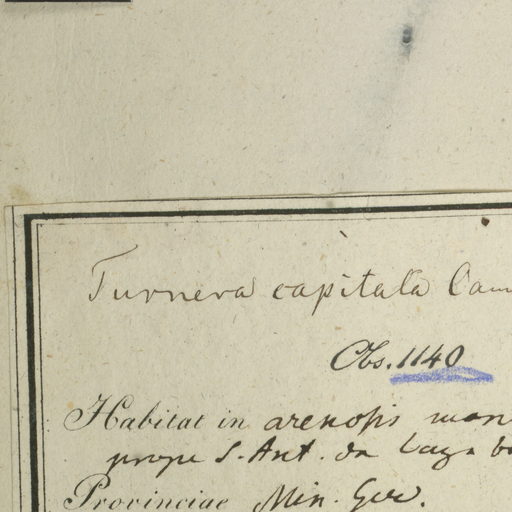 Turnera capitata Cam
Obs. 1140
Habitat in arenosis mon
prope S. Ant. da
Provinciae Min. Ger.